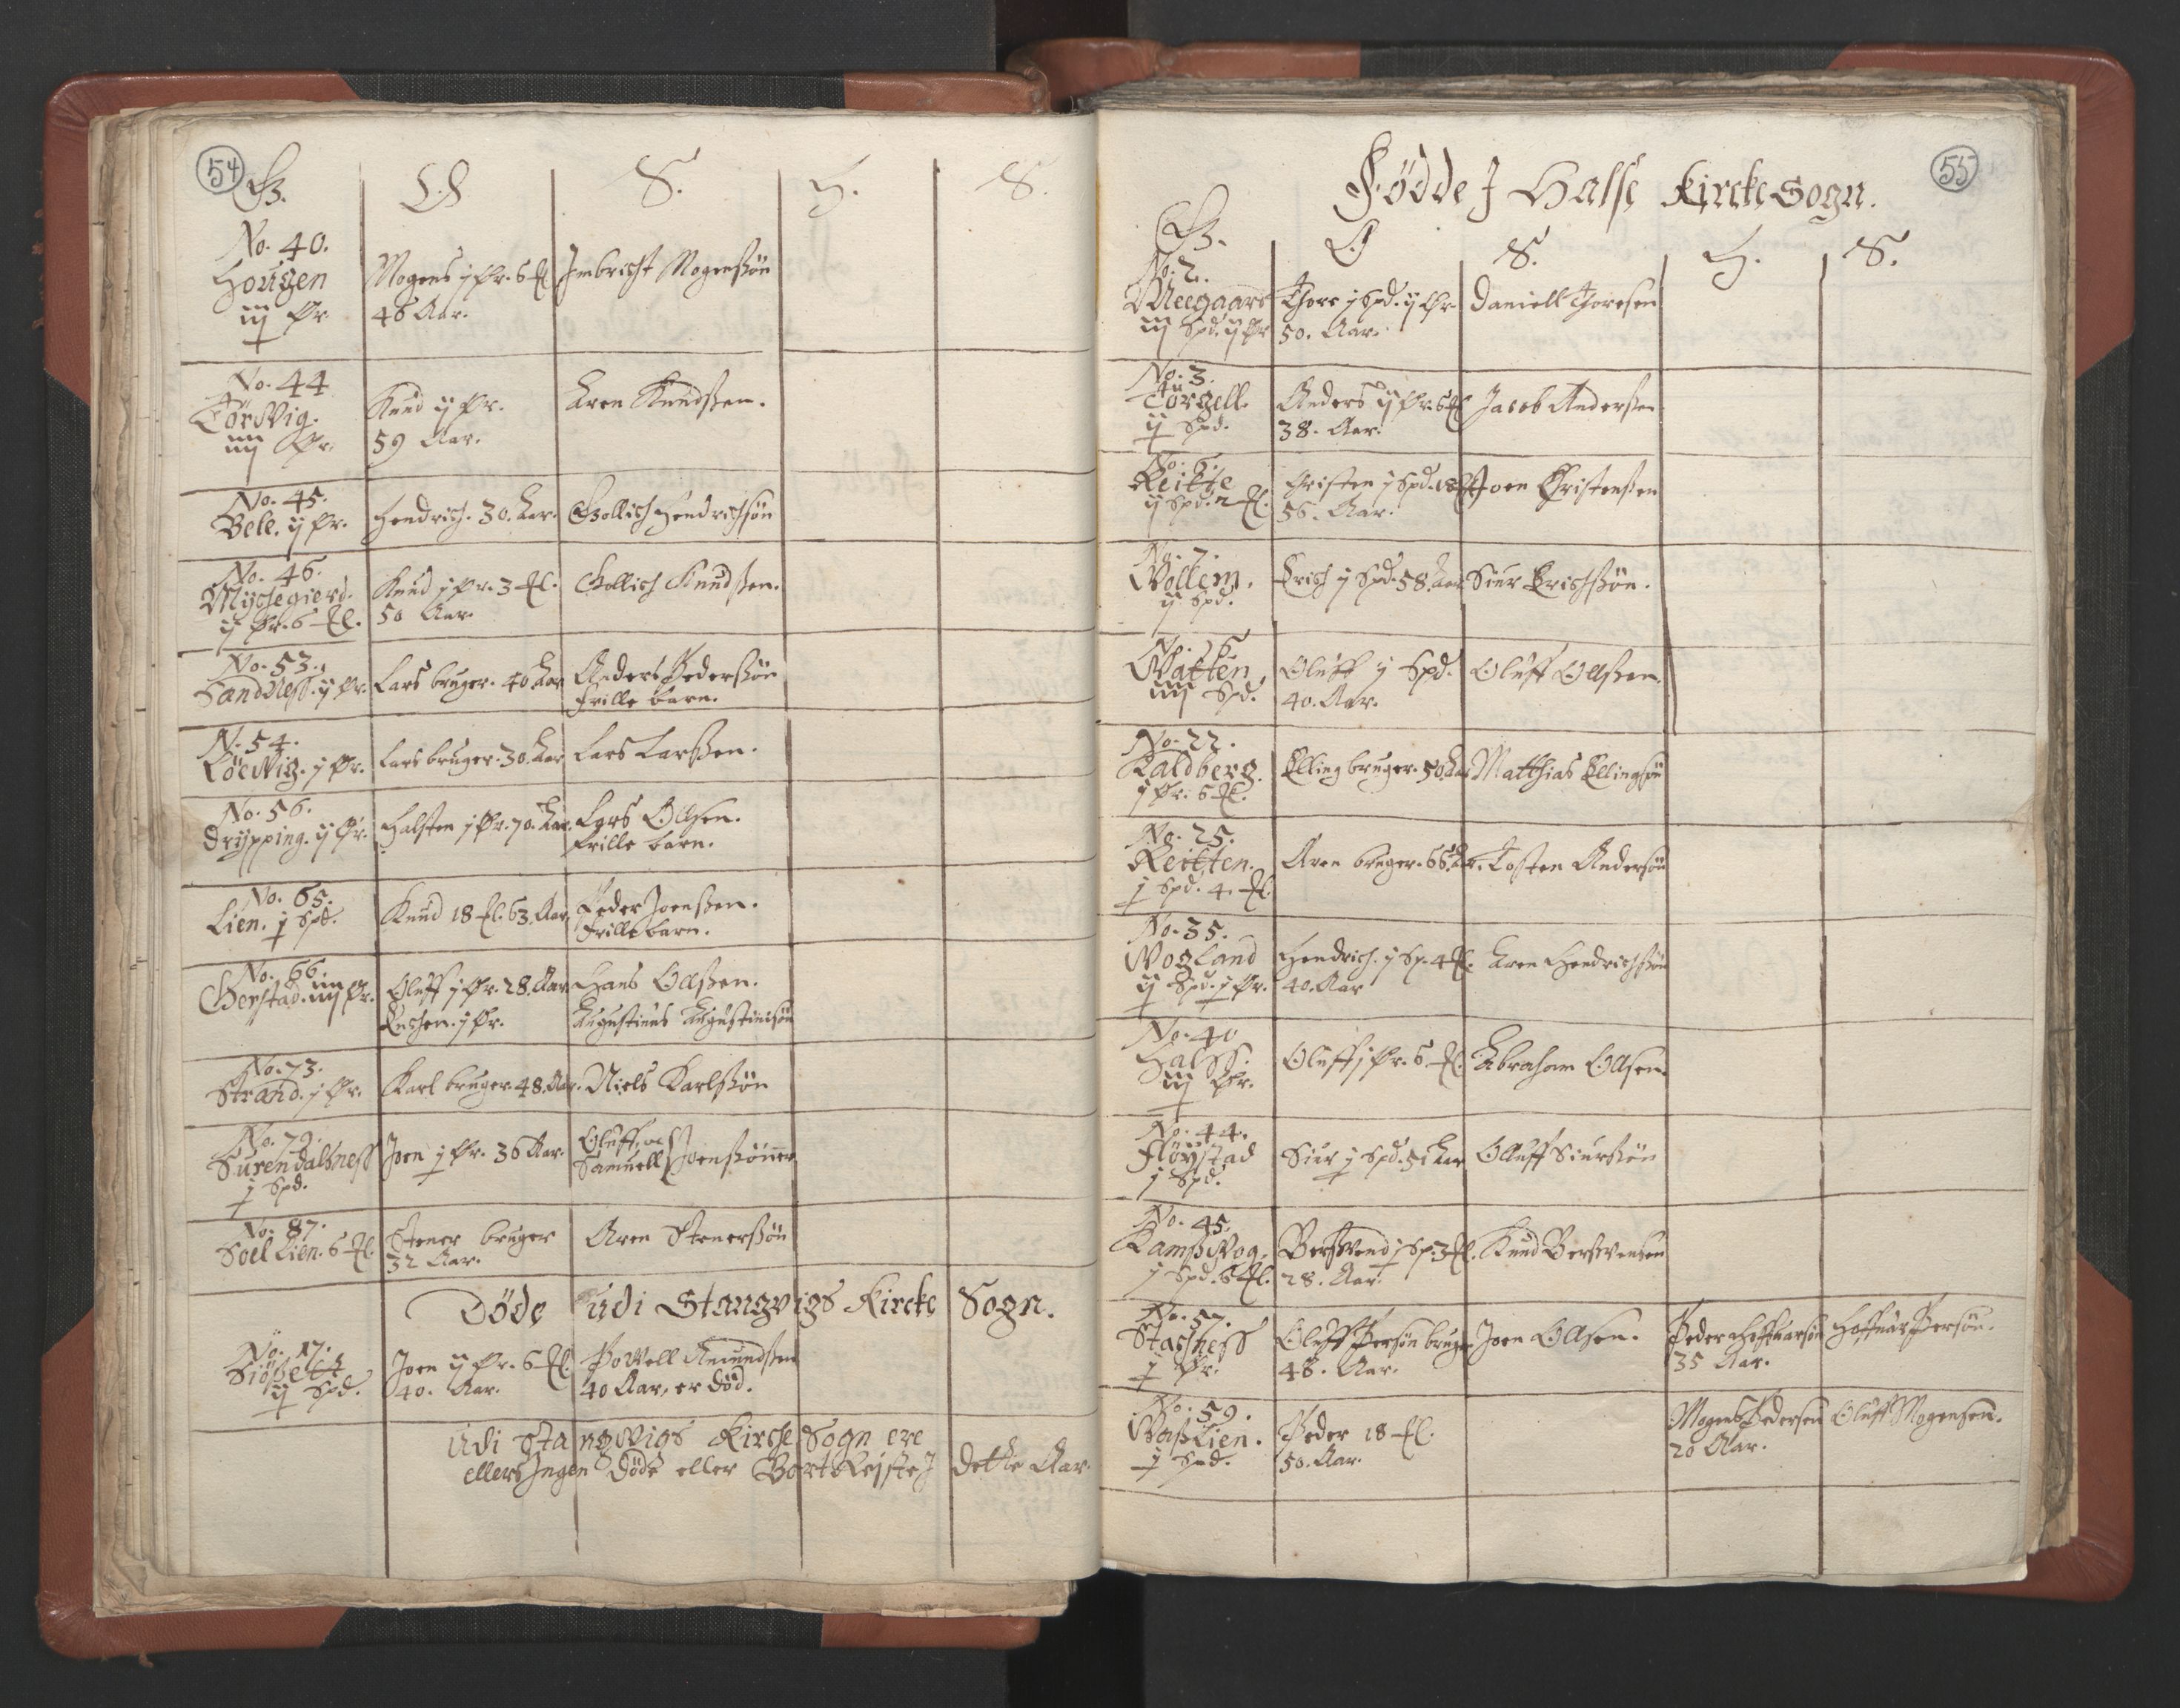 54
G. O S. H. S.
No. 40.
Hougen
iij Pr.
Mogens j Pr. 6 
46 Aar.
Imbricht Mogenßøn
No. 44
Torvig.
iiij Pr.
Knud ij Pr.
59 Aar.
Aren Knudßen.
No. 45.
Bele. ij Pr.
Hendrich. 30. Aar.
Gollich Hendrichsøn
No. 46.
Mychegierd.
ij Pr. 6
Knud j Pr. 3
50 Aar.
Gollich Knudßen.
No. 53.
Sandness. ij Pr.
Lars bruger. 40 Aar
Anders Pederßøn
Frille barn.
N. 54.
j Pr.
Lars bruger. 30. Aar
Lars Larßen.
No. 56.
Drypping. ij Pr.
Halsten j Pr. 70. Aar.
Lars Olsen.
Frille barn.
No. 65.
Lien. j Spd.
Knud 18 63. Aar.
Peder Joenßen.
Frille barn.
No. 66.
Gerstad. iiij Pr.
Oluff j Pr. 28. Aar
Enchen. j Pr.
Hans Olßen.
Augustinus Augustinisøn
No. 73.
Strand. j Pr.
Karl bruger. 48. Aar.
Niels Karlßøn
No. 79.
Surendalsness
j Spd.
Joen j Pr. 36 Aar.
Oluff, oc
Samuell Joenßønner
No. 87.
Soel Lien. 6
Stener bruger
32 Aar.
Aren Stenerßøn
Døde udi Stangvigs Kircke Sogn.
No. 17.
ij Spd.
Joen ij Pr. 6
40. Aar.
Powell Amundßen
40 Aar, er død.
Udi Stangvigs Kirche Sogn ere
ellers Ingen Døde eller Bort Rejste J dette Aar.
55
Födde J Halse Kircke Sogn.
G. O S. H. S.
No. 2.
Meegaard
iij Spd. ij Pr
Thore j Spd. ij Pr.
50. Aar.
Daniell Thoresen
No. 3.
Torgell.
ij Spd.
Anders ij Pr. 6
38. Aar.
Jacob Anderßen
No. 6.
Reitte
ij Spd. 12
Christen j Spd. 18
56. Aar.
Joen Christenßen
No. 7.
Wollem.
ij Spd.
Erich j Spd. 58. Aar
Siur Erichßøn.
No. 16
Vatten
iiij Spd.
Oluff ij Spd.
40. Aar.
Oluff Olßen.
No. 22.
Kaldberg.
j Pr. 6
Elling bruger. 50. Aar
Matthias Ellingsøn
No. 25.
Reitten.
j Spd. 4.
Aren bruger. 66. Aar.
Tosten Andersøn
No. 35.
Wogland
ij Spd. j Pr.
Hendrich. j Sp. 4
40. Aar
Aren Hendrichßøn
No. 40
Halss.
iij Pr.
Oluff j Pr. 6
Abraham Olsen.
No. 44.
Fløystad
j Spd.
Siur j Spd. 51 Aar
Oluff Siurßøn
No. 45.
Kamßwog.
j Spd. 6
Berswend j Sp. 3
28. Aar.
Knud Berswensen
No. 57.
Stachness
j Pr.
Oluff Persøn bruger
48. Aar.
Joen Olsen.
Peder Haffuarsøn
35 Aar.
Haffuar Persøn.
No. 59.
Vaßlien.
j Spd.
Peder 18
50. Aar.
Mogens Pedersen
20 Aar.
Oluff Mogensen.